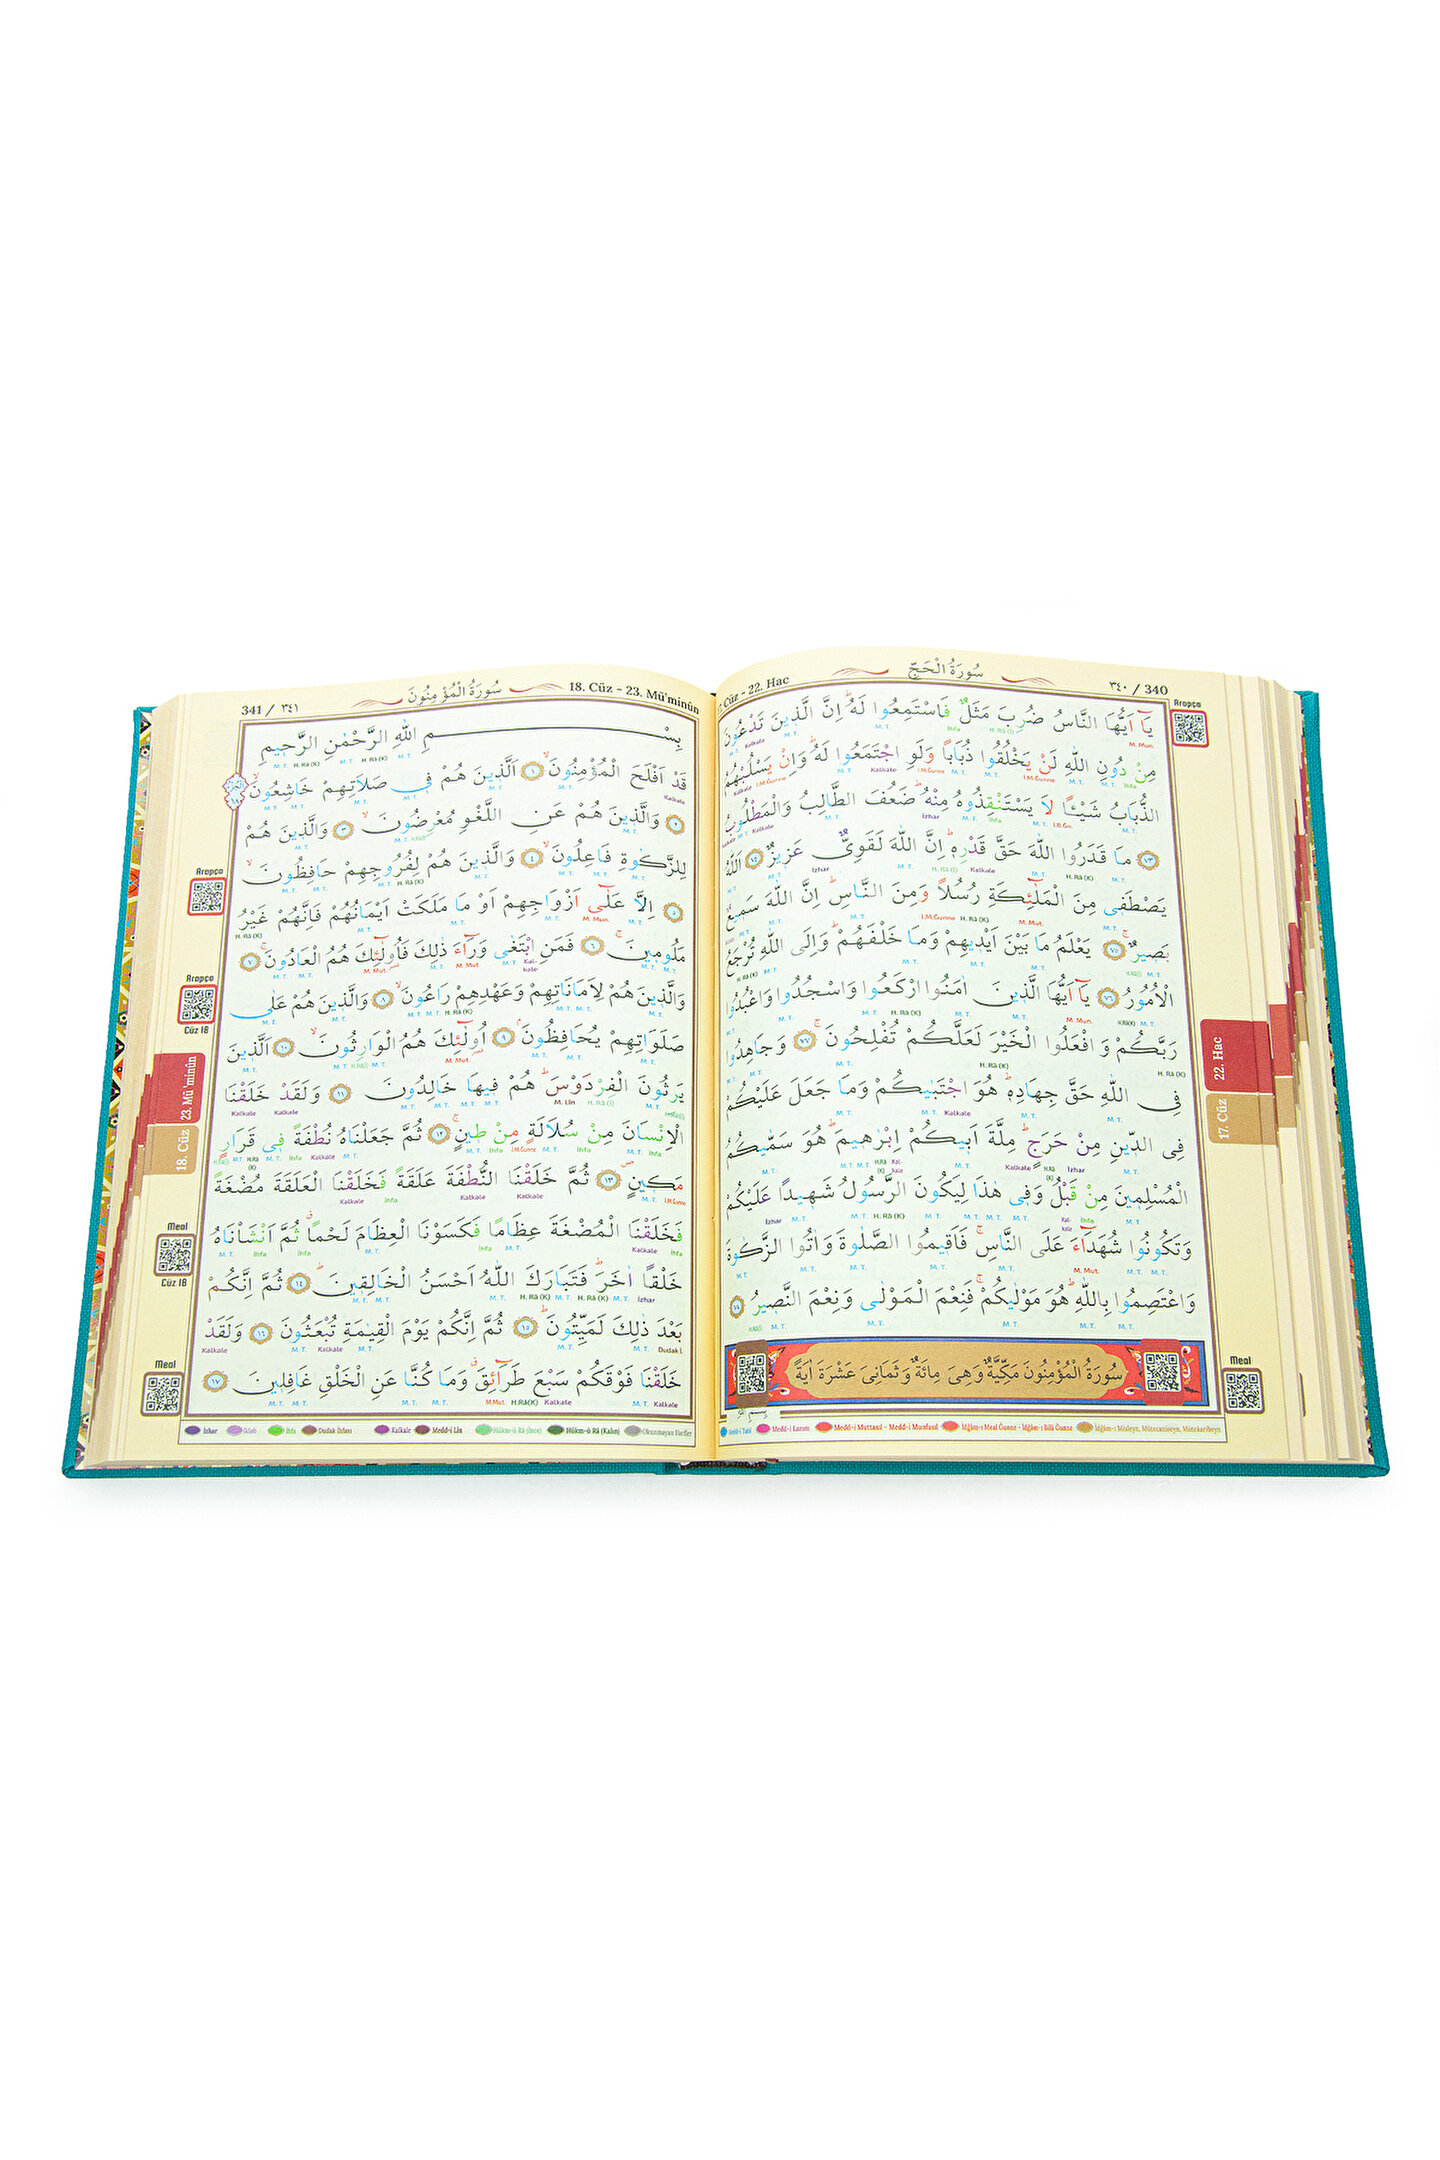 سُورَةُ الْحَجّ
٣٤٠ / 340
Cüz - 22. Hac
يَٓا اَيُّهَا النَّاسُ ضُرِبَ مَثَلٌ فَاسْتَمِعُوا لَهُۜ اِنَّ الَّذ۪ينَ تَدْعُونَ
مِنْ دُونِ اللّٰهِ لَنْ يَخْلُقُوا ذُبَاباً وَلَوِ اجْتَمَعُوا لَهُۜ وَاِنْ يَسْلُبْهُمُ
الذُّبَابُ شَيْـٔاً لَا يَسْتَنْقِذُوهُ مِنْهُۜ ضَعُفَ الطَّالِبُ وَالْمَطْلُوبُ
﴿٧٣﴾ مَا قَدَرُوا اللّٰهَ حَقَّ قَدْرِه۪ۜ اِنَّ اللّٰهَ لَقَوِيٌّ عَز۪يزٌ ﴿٧٤﴾ اَللّٰهُ
يَصْطَف۪ي مِنَ الْمَلٰٓئِكَةِ رُسُلاً وَمِنَ النَّاسِۜ اِنَّ اللّٰهَ سَم۪يعٌ
بَص۪يرٌۚ ﴿٧٥﴾ يَعْلَمُ مَا بَيْنَ اَيْد۪يهِمْ وَمَا خَلْفَهُمْۜ وَاِلَى اللّٰهِ تُرْجَعُ
الْاُمُورُ ﴿٧٦﴾ يَٓا اَيُّهَا الَّذ۪ينَ اٰمَنُوا ارْكَعُوا وَاسْجُدُوا وَاعْبُدُوا
رَبَّكُمْ وَافْعَلُوا الْخَيْرَ لَعَلَّكُمْ تُفْلِحُونَۚ ﴿٧٧﴾ وَجَاهِدُوا
فِي اللّٰهِ حَقَّ جِهَادِه۪ۜ هُوَ اجْتَبٰيكُمْ وَمَا جَعَلَ عَلَيْكُمْ
فِي الدّ۪ينِ مِنْ حَرَجٍۜ مِلَّةَ اَب۪يكُمْ اِبْرٰه۪يمَۜ هُوَ سَمّٰيكُمُ
الْمُسْلِم۪ينَ مِنْ قَبْلُ وَف۪ي هٰذَا لِيَكُونَ الرَّسُولُ شَه۪يداً عَلَيْكُمْ
وَتَكُونُوا شُهَدَٓاءَ عَلَى النَّاسِۚ فَاَق۪يمُوا الصَّلٰوةَ وَاٰتُوا الزَّكٰوةَ
وَاعْتَصِمُوا بِاللّٰهِۜ هُوَ مَوْلٰيكُمْۚ فَنِعْمَ الْمَوْلٰى وَنِعْمَ النَّص۪يرُ ﴿٧٨﴾
سُورَةُ الْمُؤْمِنُونَ مَكِّيَّةٌ وَهِيَ مِائَةٌ وَثَمَانِيَ عَشْرَةَ اٰيَةً
Medd-i Tabî Medd-i Lazım Medd-i Muttasıl - Medd-i Munfasıl İdğam-ı Meal Ğunne - İdğam-ı Bilâ Ğunne İdğam-ı Misleyn, Mütecaniseyn, Mütekaribeyn
Arapça
22. Hac
17. Cüz
Meal
341 / ٣٤١
سُورَةُ الْمُؤْمِنُونَ
18. Cüz - 23. Mü'minûn
بِسْمِ اللّٰهِ الرَّحْمٰنِ الرَّح۪يمِ
قَدْ اَفْلَحَ الْمُؤْمِنُونَۙ ﴿١﴾ اَلَّذ۪ينَ هُمْ ف۪ي صَلَاتِهِمْ خَاشِعُونَۙ
﴿٢﴾ وَالَّذ۪ينَ هُمْ عَنِ اللَّغْوِ مُعْرِضُونَۙ ﴿٣﴾ وَالَّذ۪ينَ هُمْ
لِلزَّكٰوةِ فَاعِلُونَۙ ﴿٤﴾ وَالَّذ۪ينَ هُمْ لِفُرُوجِهِمْ حَافِظُونَۙ
﴿٥﴾ اِلَّا عَلٰٓى اَزْوَاجِهِمْ اَوْ مَا مَلَكَتْ اَيْمَانُهُمْ فَاِنَّهُمْ غَيْرُ
مَلُوم۪ينَۚ ﴿٦﴾ فَمَنِ ابْتَغٰى وَرَٓاءَ ذٰلِكَ فَاُو۬لٰٓئِكَ هُمُ الْعَادُونَۚ ﴿٧﴾
وَالَّذ۪ينَ هُمْ لِاَمَانَاتِهِمْ وَعَهْدِهِمْ رَاعُونَۙ ﴿٨﴾ وَالَّذ۪ينَ هُمْ عَلٰى
صَلَوَاتِهِمْ يُحَافِظُونَۢ ﴿٩﴾ اُو۬لٰٓئِكَ هُمُ الْوَارِثُونَۙ ﴿١٠﴾ اَلَّذ۪ينَ
يَرِثُونَ الْفِرْدَوْسَۜ هُمْ ف۪يهَا خَالِدُونَ ﴿١١﴾ وَلَقَدْ خَلَقْنَا
الْاِنْسَانَ مِنْ سُلَالَةٍ مِنْ ط۪ينٍۚ ﴿١٢﴾ ثُمَّ جَعَلْنَاهُ نُطْفَةً ف۪ي قَرَارٍ
مَك۪ينٍۖ ﴿١٣﴾ ثُمَّ خَلَقْنَا النُّطْفَةَ عَلَقَةً فَخَلَقْنَا الْعَلَقَةَ مُضْغَةً
فَخَلَقْنَا الْمُضْغَةَ عِظَاماً فَكَسَوْنَا الْعِظَامَ لَحْماًۗ ثُمَّ اَنْشَأْنَاهُ
خَلْقاً اٰخَرَۜ فَتَبَارَكَ اللّٰهُ اَحْسَنُ الْخَالِق۪ينَۜ ﴿١٤﴾ ثُمَّ اِنَّكُمْ
بَعْدَ ذٰلِكَ لَمَيِّتُونَۜ ﴿١٥﴾ ثُمَّ اِنَّكُمْ يَوْمَ الْقِيٰمَةِ تُبْعَثُونَ ﴿١٦﴾ وَلَقَدْ
خَلَقْنَا فَوْقَكُمْ سَبْعَ طَرَٓائِقَۗ وَمَا كُنَّا عَنِ الْخَلْقِ غَافِل۪ينَ ﴿١٧﴾
İzhar İklab İhfa Dudak İhfası Kalkale Medd-i Lîn Hükm-ü Râ (İnce) Hükm-ü Râ (Kalın) Okunmayan Harfler
Arapça
Arapça
Cüz 18
23. Mü'minûn
18. Cüz
Meal
Cüz 18
Meal